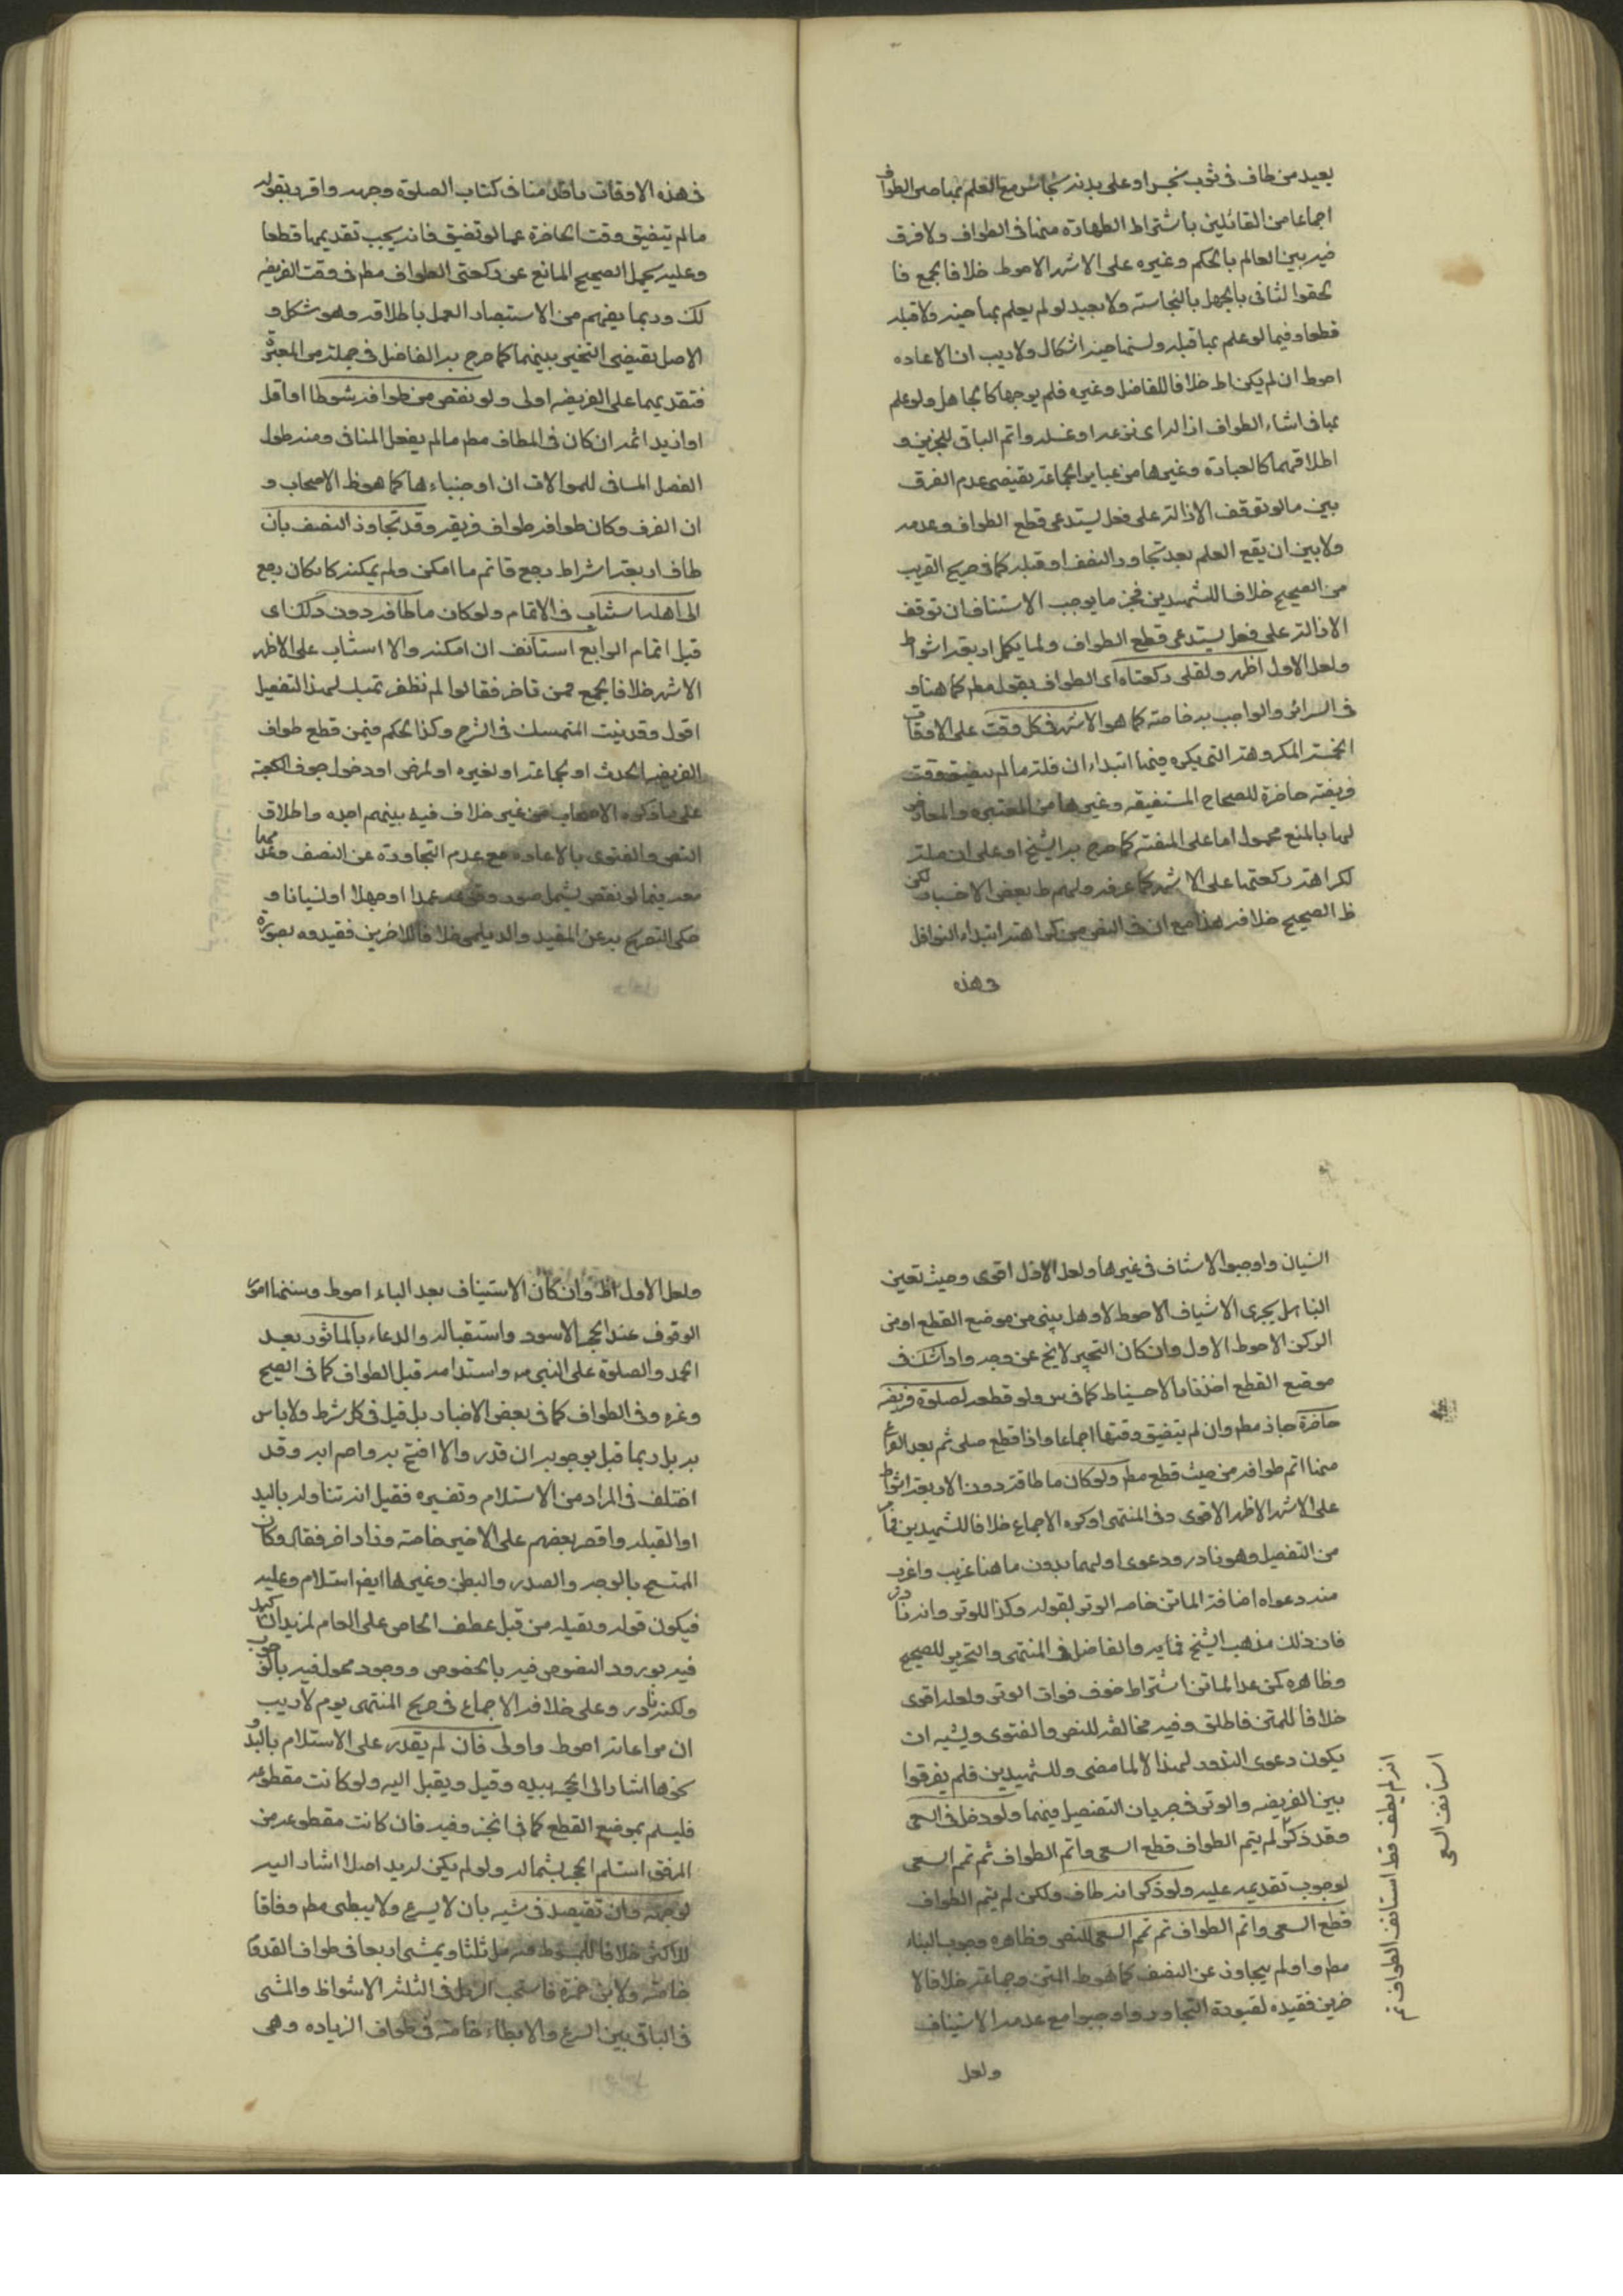 يعيد من طاف فى ثوب نجس او على بدنه نجاسة مع العلم بها حين الطواف
اجماعا من القائلين باشتراط الطهارة منها فى الطواف ولا فرق
فيه بين العالم بالحكم وغيره على الاشهر الاحوط خلافا لجمع فا
لحقوا الثانى بالجهل بالنجاسة ولا يعيد لو لم يعلم بها حينه ولا قبله
قطعا وفيما لو علم بها قبله ونسيها حينه اشكال ولا ريب ان الاعاده
احوط ان لم يكن اظ خلافا للفاضل وغيره فلم يوجبها كالجاهل ولو علم
بها فى اثناء الطواف ازاله اى نزعه او غسله واتم الباقى للخبرين و
اطلاقهما كالعبارة وغيرها من عباير الجماعة يقتضى عدم الفرق
بين ما لو توقف الازالة على فعل يستدعى قطع الطواف وعدمه
ولا بين ان يقع العلم بعد تجاوز النصف او قبله كما فى صريح القريب
من الصحيح خلافا للشهيدين فجزما بوجوب الاستيناف ان توقف
الازالة على فعل يستدعى قطع الطواف ولما يكمل اربعة اشواط
ولعل الاول اظهر ويصلى ركعتاه اى الطواف بقول مطم كما هنا و
فى السرائر والواجب به خاصة كما هو الاشهر فى كل وقت حتى الاوقات
الخمسة المكروهة التى يكره فيها ابتداء النافلة ما لم يتضيق وقت
فريضة حاضرة للصحاح المستفيضه وغيرها من المعتبره والمعارض
لها بالمنع محمول اما على التقية كما صرح به الشيخ او على ان صلة
لكراهة ركعتها على الاشهر كما عرفه ولهم ظ بعض الاخبار لكن
ظ الصحيح خلافه هذا مع ان فى النص من كراهة ابتداء النوافل
فى هذه
فى هذه الاوقات ما قدمنا فى كتاب الصلوة وجهه واقر بتقوله
ما لم يتضيق وقت الحاضرة عما لو تضيق فانه يجب تقديمها قطعا
وعليه يحمل الصحيح المانع عن ركعتى الطواف مطم فى وقت الفريضه
لك وربما يفهم من الاستبصار العمل باطلاقه وهو شكل و
الاصل يقتضى التخيير بينهما كما صرح به الفاضل فى جملة من المعتبرة
فتقديمها على الفريضه اولى ولو نقص من طوافه شوطا او اقل
او ازيد اتمه ان كان فى المطاف مطم ما لم يفعل المنافى ومنه طول
الفصل المنافى للموالات ان اوجبناءها كما هو ظ الاصحاب و
ان انصرف وكان طوافه طواف فريضة وقد تجاوز النصف بان
طاف اربعة اشواط رجع فاتم ما امكن ولو لم يمكنه كان كان رجع
الى اهله استناب فى الاتمام ولو كان ما طافه دون ذلك اى
قبل اتمام الرابع استانف ان امكنه والا استناب على الاظهر
الاشهر خلافا لجمع ممن تاخر فقالوا لم نظفر بدليل لهذا التفصيل
اقول وقد بينت المتمسك فى الشرح وكذا الحكم فيمن قطع طواف
الفريضه لحدث او لجماعة او لغيره او لمرض او دخول جوف الكعبة
على ما ذكره الاصحاب من غير خلاف فيه بينهم اجده واطلاق
النص والفتوى بالاعاده مع عدم التجاوز عن النصف وعدمها
معه فيما لو نقص يشمل صور وقوعه عمدا او جهلا او نسيانا و
حكى التصريح به عن المفيد والديلمى خلافا للاخرين فقيدوه بصورة
النسيان واوجبوا الاستناف فى غيرها ولعل الاول اقوى وحيث تعين
البنا هل يجزى الاستياف الاحوط لا وهل يبنى من موضع القطع او من
الركن الاحوط الاول وان كان التخيير لا يخ عن وجه واذا شك فى
موضع القطع اخذ بالاحتياط كما فى س ولو قطعه لصلوة فريضه
حاضرة جاز مطم وان لم يتضيق وقتها اجماعا واذا قطع صلى ثم بعد الفراغ
منها اتم طوافه من حيث قطع مطم ولو كان ما طافه دون الاربعة اشواط
على الاشهر الاظهر الاقوى وفى المنتهى او كره الاجماع خلافا للشهيدين فا
من التفصيل وهو نادر ودعوى اولهما بدون ما هنا غريب واغرب
منه دعواه اضافة الماتن خاصه الوتر بقوله وكذا للوتر وانه نادر
فان ذلك مذهب الشيخ فى يه والفاضل فى المنتهى والتحرير للصحيح
وظاهره كمن عدا الماتن اشتراط خوف فوات الوتر ولعله اقوى
خلافا للمتن فاطلق وفيه مخالفة للنص والفتوى ويشبه ان
يكون دعوى الندور لهذا لا لما مضى وللشهيدين فلم يفرقوا
بين الفريضه والوتر فى جريان التفصيل فيهما ولو دخل فى السعى
وقد ذكر لم يتم الطواف قطع السعى واتم الطواف ثم تمم السعى
لوجوب تقديمه عليه ولو ذكر انه طاف ولكن لم يتم الطواف
قطع السعى واتم الطواف ثم تمم السعى للنص وظاهره وجوب البناء
مطم ولو لم يتجاوز عن النصف كما هو ظ المتن وجماعة خلافا لا
خرين فقيده بصورة التجاوز واوجبوا مع عدمه الاستيناف
ولعل
انه لم يطف قط استانف الطواف ثم
استانف السعى
ولعل الاول اظ وان كان الاستيناف بعد البناء احوط وسننها امور
الوقوف عند الحجر الاسود واستقباله والدعاء بالماثور بعد
الحمد والصلوة على النبى ص واستدامه قبل الطواف كما فى الصحيح
وغيره وفى الطواف كما فى بعض الاخبار بل قيل فى كل شوط ولا باس
به بل ربما قيل بوجوبه ان قدر والا افتتح به واختم به وقد
اختلف فى المراد من الاستلام وتفسيره فقيل انه تناوله باليد
او القبله واقتصر بعضهم على الاخير خاصة وزاد اخر فقال وكان
التمسح بالوجه والصدر والبطن وغيرها ايضا استلام وعليه
فيكون قوله وتقبيله من قبل عطف الخاص على العام لمزيد التاكيد
فيه بورود النصوص فيه بالخصوص ووجود محمول فيه بالوجوب
ولكنه نادر وعلى خلافه الاجماع فى صريح المنتهى نعم لا ريب
ان مراعاته احوط واولى فان لم يقدر على الاستلام باليد و
نحوها اشار الى الحجر بيده وقيل ويقبل اليه ولو كانت مقطوعه
فليسلم بموضع القطع كما فى الخبر وفيه فان كانت مقطوعه من
المرفق استلم الحجر بشماله ولو لم يكن له يد اصلا اشار اليه
بوجهه وان تقتصد فى مشيه بان لا يسرع ولا يبطى مطم وفاقا
للاكثر خلافا للمبسوط فيرمل ثلثا ويمشى اربعا فى طواف القدوم
خاصة ولابن حمزة فاستحب الرمل فى الثلثة الاشواط والمشى
فى الباقى بين السرع والابطاء خاصة فى طواف الزياره وهى